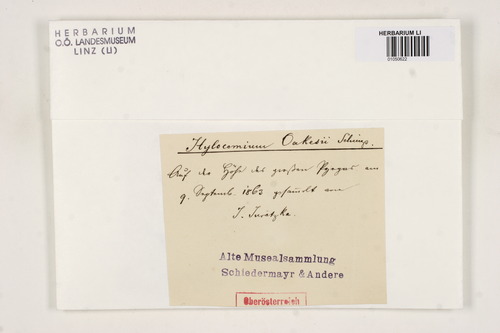 HERBARIUM
O.Ö. LANDESMUSEUM
LINZ (LI)
HERBARIUM LI
01050622
Hylocomium Oakesii Schimp.
Auf der Höhe des großen Pyrgas am
9. Septemb. 1863 gesammelt von
J. Juratzka.
Alte Musealsammlung
Schiedermayr & Andere
Oberösterreich